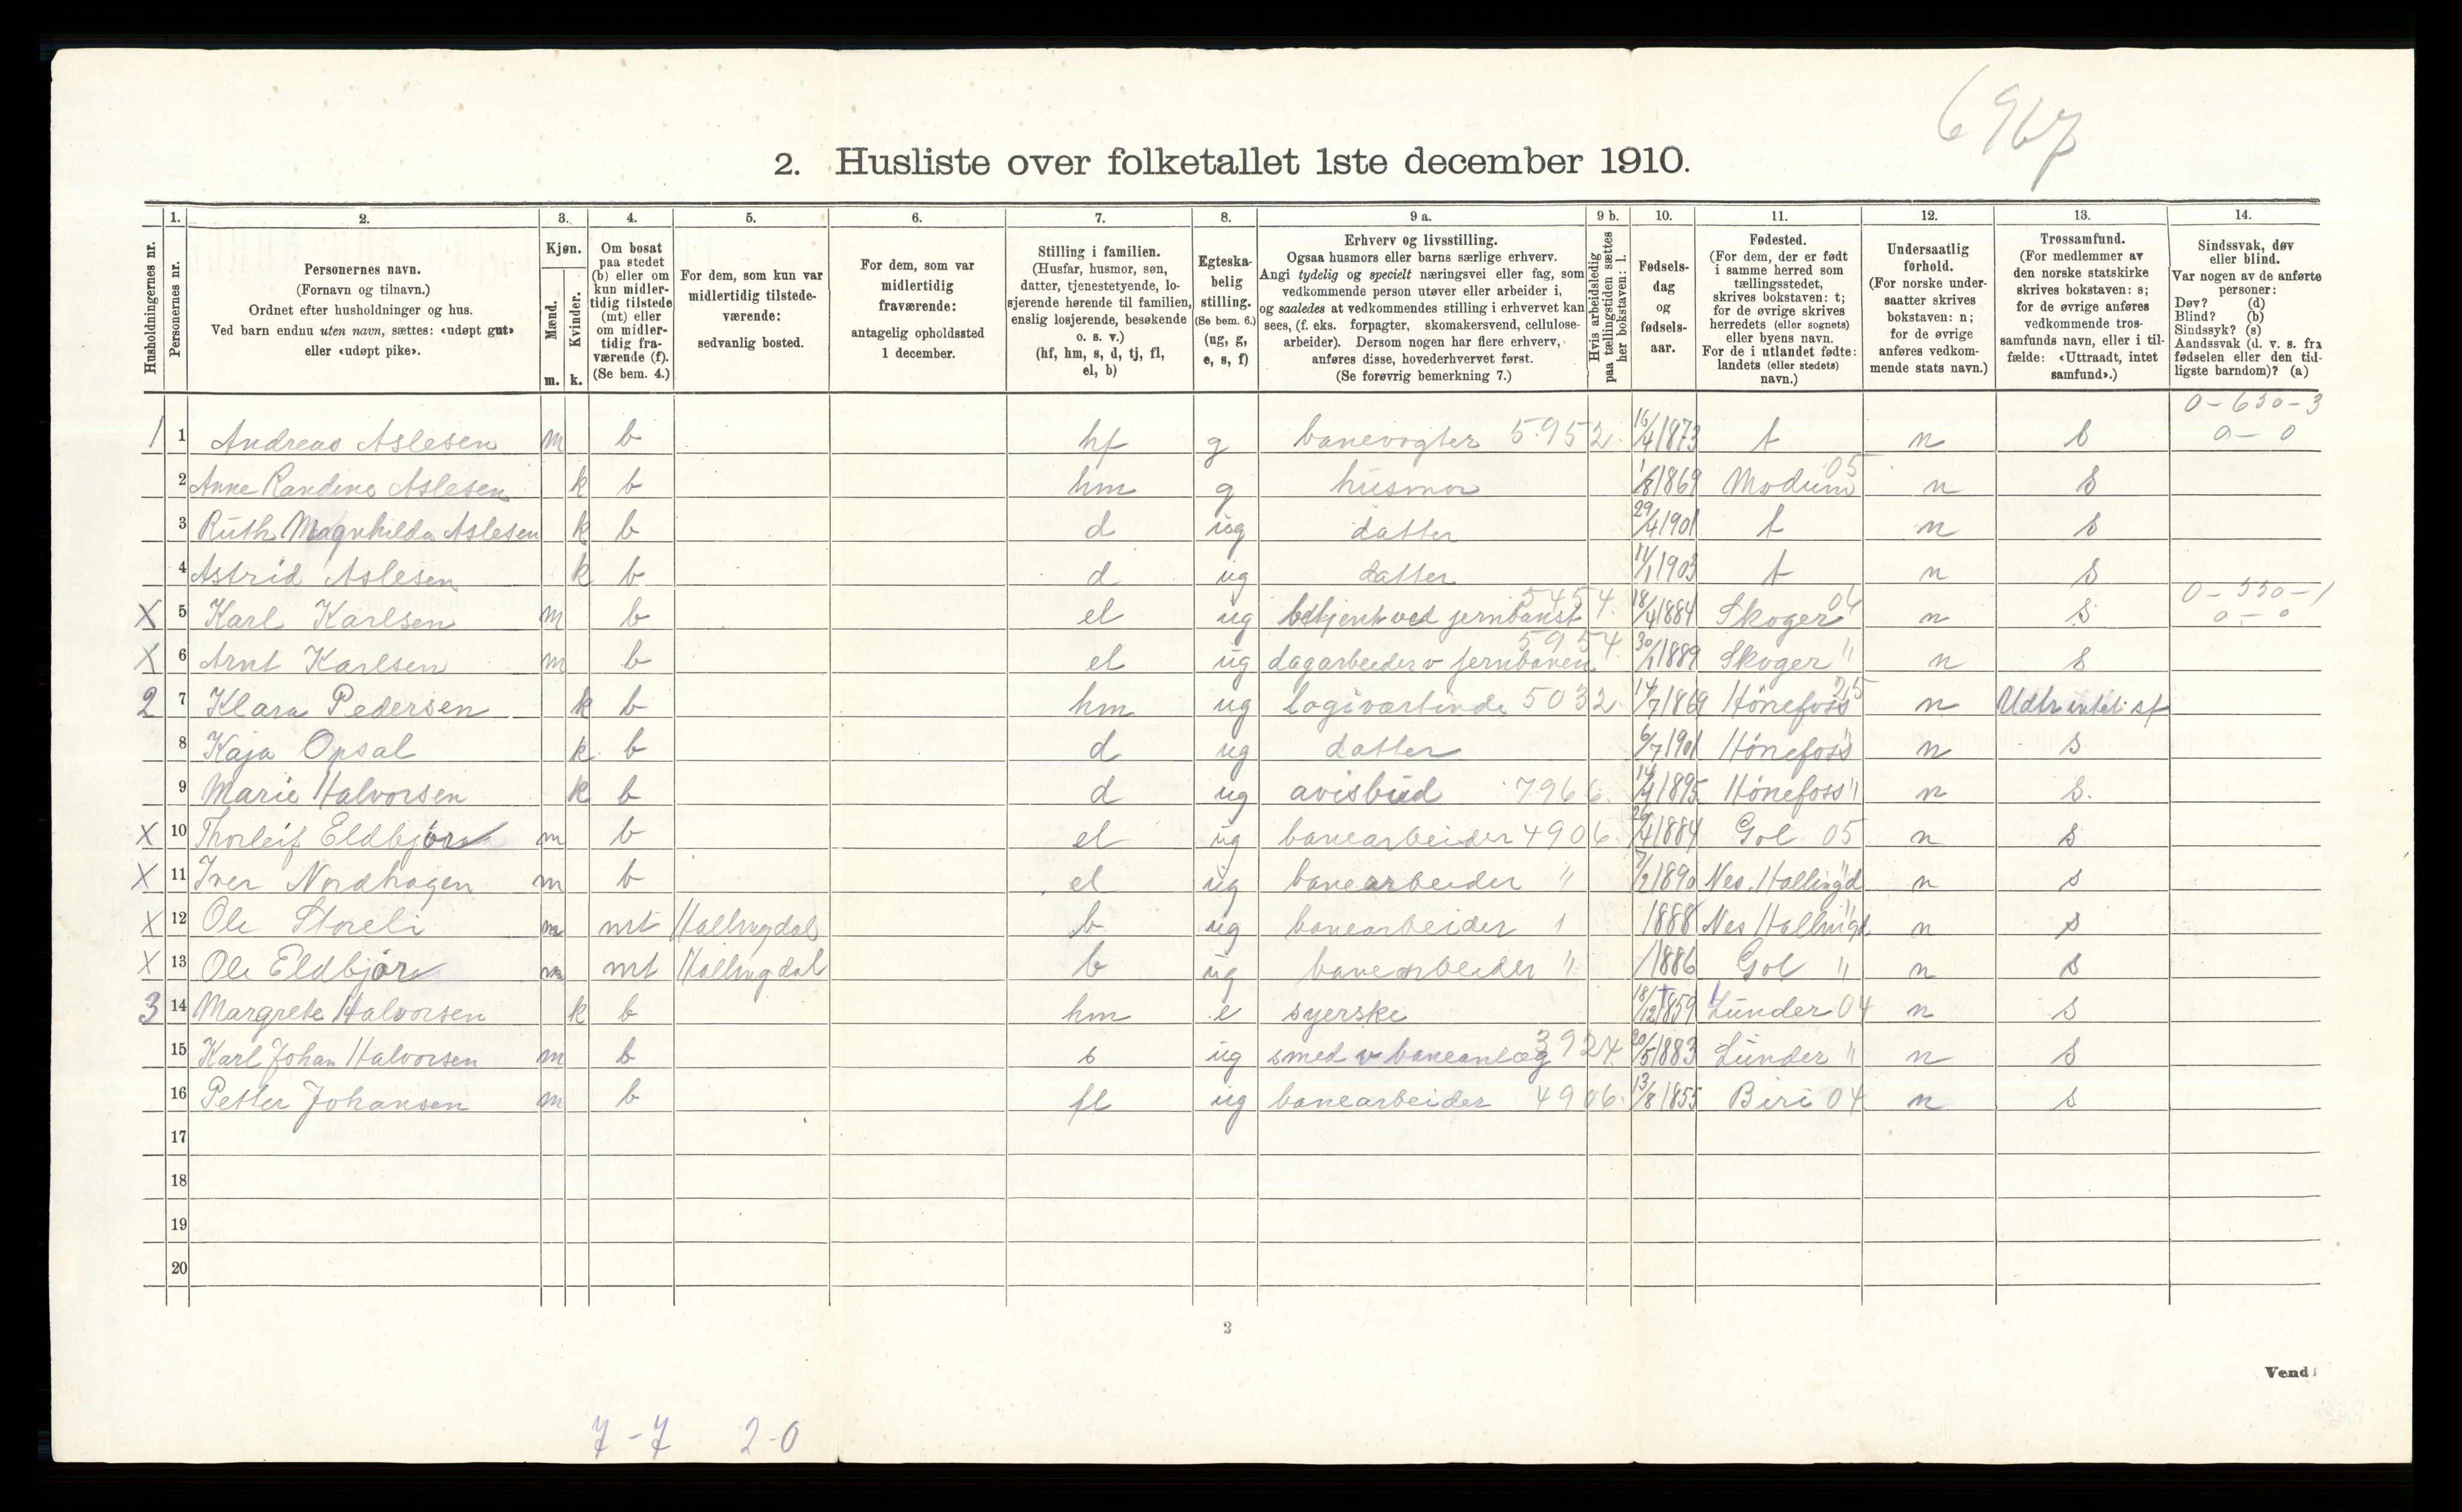 6967
2. Husliste over folketallet 1ste december 1910.
Husholdningernes nr.
1. Personernes nr.
2. Personernes navn. (Fornavn og tilnavn.) Ordnet efter husholdninger og hus. Ved barn endnu uten navn, sættes: «udøpt gut» eller «udøpt pike».
3. Kjøn. Mænd. m. Kvinder. k.
4. Om bosat paa stedet (b) eller om kun midlertidig tilstede (mt) eller om midlertidig fraværende (f). (Se bem. 4.)
5. For dem, som kun var midlertidig tilstedeværende: sedvanlig bosted.
6. For dem, som var midlertidig fraværende: antagelig opholdssted 1 december.
7. Stilling i familien. (Husfar, husmor, søn, datter, tjenestetyende, losjerende hørende til familien, enslig losjerende, besøkende o. s. v.) (hf, hm, s, d, tj, fl, el, b)
8. Egteskabelig stilling. (Se bem. 6.) (ug, g, e, s, f)
9 a. Erhverv og livsstilling. Ogsaa husmors eller barns særlige erhverv. Angi tydelig og specielt næringsvei eller fag, som vedkommende person utøver eller arbeider i, og saaledes at vedkommendes stilling i erhvervet kan sees, (f. eks. forpagter, skomakersvend, cellulosearbeider). Dersom nogen har flere erhverv, anføres disse, hovederhvervet først. (Se forøvrig bemerkning 7.)
9 b. Hvis arbeidsledig paa tællingstiden sættes her bokstaven: l.
10. Fødselsdag og fødselsaar.
11. Fødested. (For dem, der er født i samme herred som tællingsstedet, skrives bokstaven: t; for de øvrige skrives herredets (eller sognets) eller byens navn. For de i utlandet fødte: landets (eller stedets) navn.)
12. Undersaatlig forhold. (For norske undersaatter skrives bokstaven: n; for de øvrige anføres vedkommende stats navn.)
13. Trossamfund. (For medlemmer av den norske statskirke skrives bokstaven: s; for de øvrige anføres vedkommende trossamfunds navn, eller i tilfælde: «Uttraadt, intet samfund».)
14. Sindssvak, døv eller blind. Var nogen av de anførte personer: Døv? (d) Blind? (b) Sindssyk? (s) Aandssvak (d. v. s. fra fødselen eller den tidligste barndom)? (a)
0-630-3
1 1 Andreas Aslesen m b hf g banevogter 5952. 16/4 1873 t n s 0-0
2 Anne Randine Aslesen k b hm g husmor 1/8 1869 Modum 05 n s
3 Ruth Magnhilda Aslesen k b d ug datter 29/4 1901 t n s
4 Astrid Aslesen k b d ug datter 11/1 1903 t n s
X 5 Karl Karlsen m b el ug betjent ved jernbanst 5454. 18/4 1884 Skoger 04 n s 0-550-1 0-0
X 6 Arnt Karlsen m b el ug dagarbeider v jernbanen 5954. 30/1 1889 Skoger " n s
2 7 Klara Pedersen k b hm ug logivertinde 5032. 14/7 1869 Hönefoss 25 n Udtr intet sf
8 Kaja Opsal k b d ug datter 6/7 1901 Hönefoss " n s
9 Marie Halvorsen k b d ug avisbud 7966. 14/4 1895 Hönefoss " n s.
X 10 Thorleif Eldbjör m b el ug banearbeider 4906. 26/4 1884 Gol 05 n s
X 11 Iver Nordhagen m b el ug banearbeider " 7/2 1890 Nes. Hallingd " n s
X 12 Ole Storeli m mt Hallingdal b ug banearbeider 1 1888 Nes Hallingd " n s
X 13 Ole Eldbjör m mt Hallingdal b ug banearbeider " 1886 Gol " n s
3 14 Margrete Halvorsen k b hm e syerske 18/12 1859 Lunder 04 n s
15 Karl Johan Halvorsen m b s ug smed v baneanlæg 3924. 20/5 1883 Lunder " n s
16 Petter Johansen m b fl ug banearbeider 4906. 13/8 1855 Biri 04 n s
17
18
19
20
2
Vend
7-7 2-0